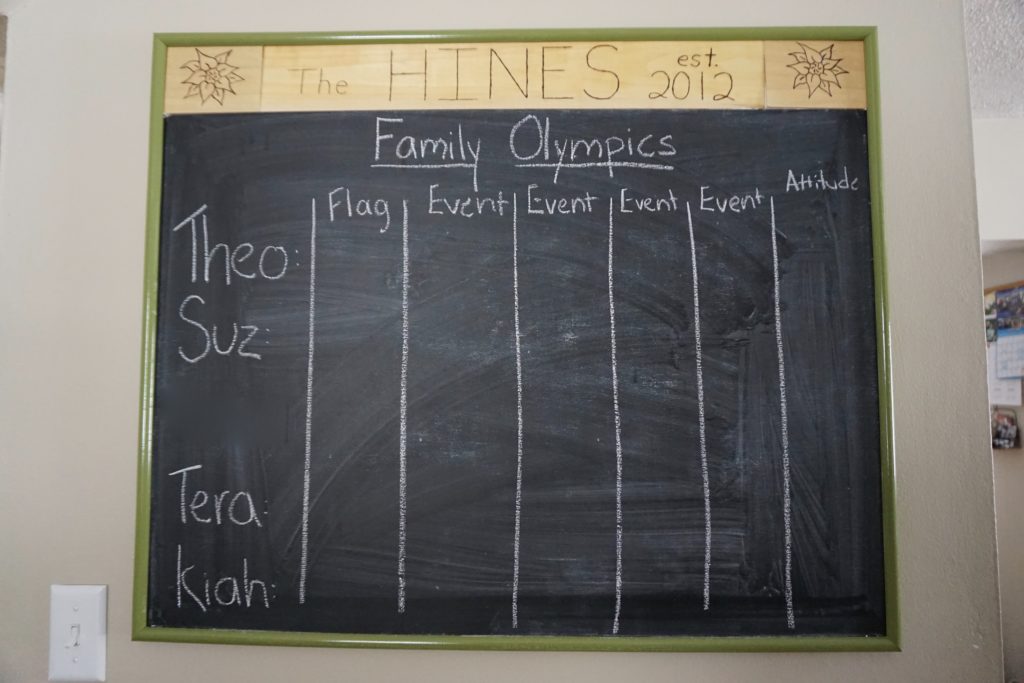 The HINES est. 2012
Family Olympics
Flag Event Event Event Event Attitude
Theo:
Suz:
Tera:
Kiah: